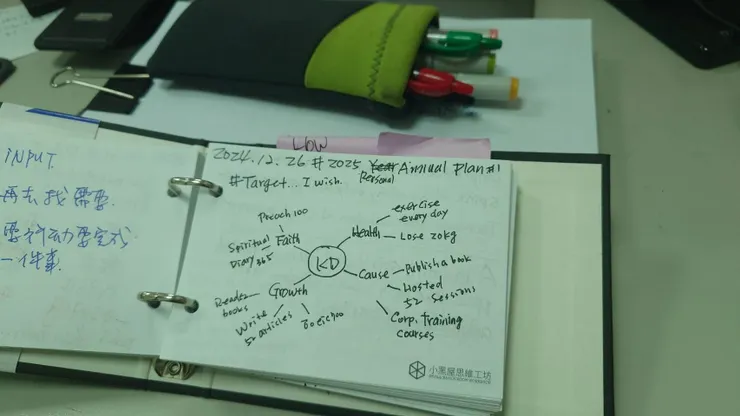 INPUT
再去找需要.
要行动要完成
一件事.
LBW
2024.12.26 # 2025 Annual plan #1
Personal
#Target... I wish.
KD
Faith
Preach 100
Spiritual
Diary 365
Health
exercise
every day
Lose 20kg
Cause
Publish a book
Hosted
52 sessions
Corp. training
courses
Growth
Write
50 articles
books
小黑屋思維工坊